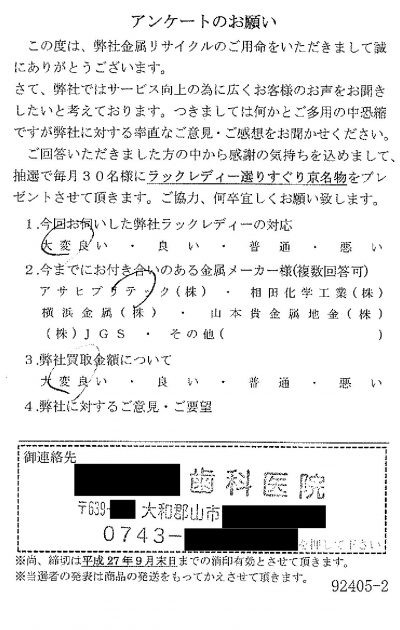 アンケートのお願い
この度は、弊社金属リサイクルのご用命をいただきまして誠
にありがとうございます。
さて、弊社ではサービス向上の為に広くお客様のお声をお聞き
したいと考えております。つきましては何かとご多用の中恐縮
ですが弊社に対する率直なご意見・ご感想をお聞かせください。
ご回答いただきました方の中から感謝の気持ちを込めまして、
抽選で毎月30名様にラックレディー選りすぐり京名物をプレ
ゼントさせて頂きます。ご協力、何卒宜しくお願い致します。
1.今回お伺いした弊社ラックレディーの対応
大変良い・良い・普通・悪い
2.今までにお付き合いのある金属メーカー様(複数回答可)
アサヒプリテック(株)・相田化学工業(株)
横浜金属(株)・山本貴金属地金(株)
(株)JGS・その他( )
3.弊社買取金額について
大変良い・良い・普通・悪い
4.弊社に対するご意見・ご要望
御連絡先
歯科医院
〒639- 大和郡山市
0743- を押して下さい
※尚、締切は平成27年9月末日までの消印有効とさせて頂きます。
※当選者の発表は商品の発送をもってかえさせて頂きます。
92405-2